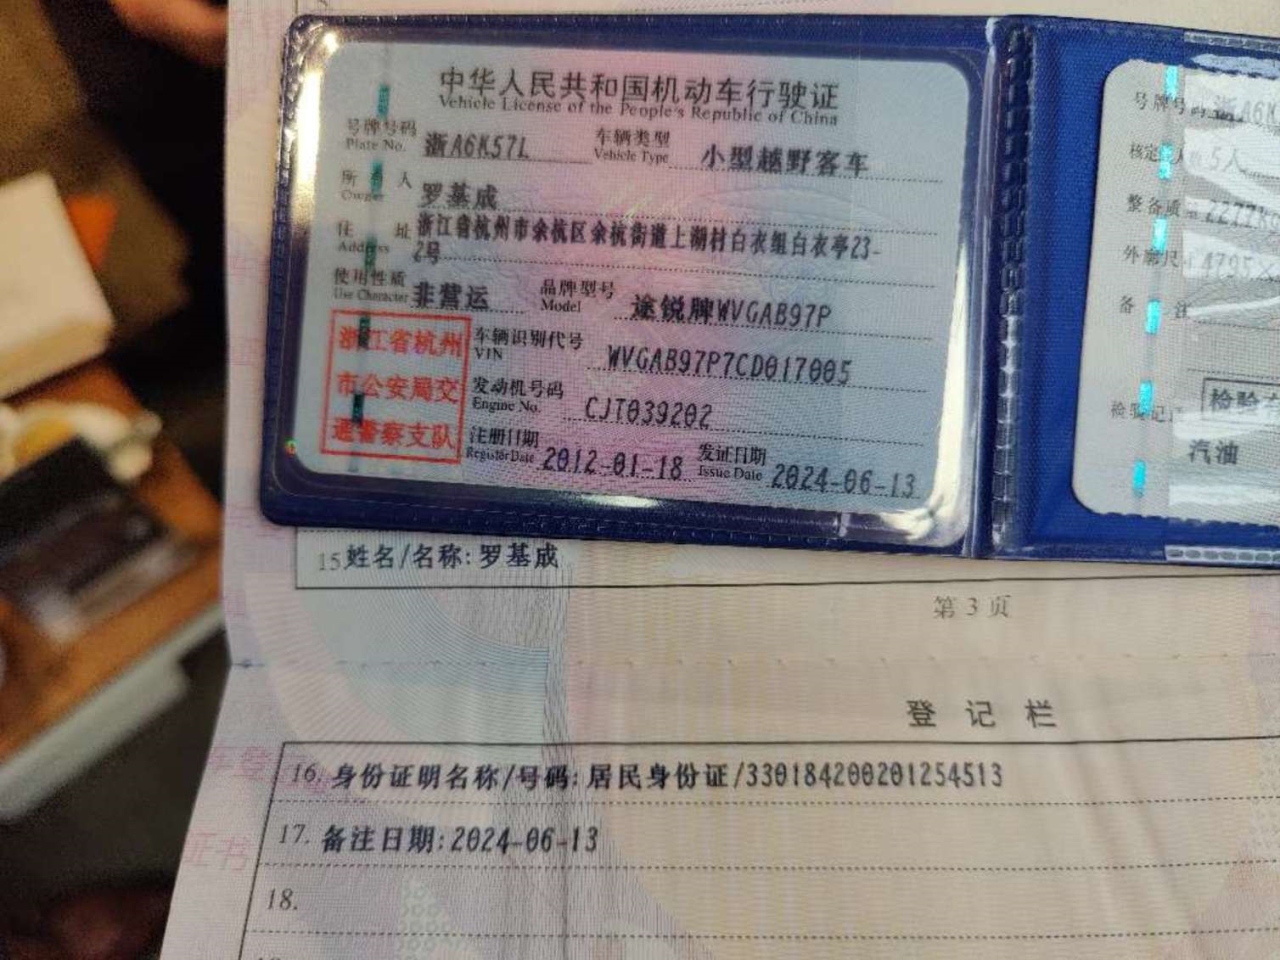 中华人民共和国机动车行驶证
Vehicle License of the People's Republic of China
号牌号码 浙A6K57L 车辆类型 小型越野客车
Plate No. Vehicle Type
所 人 罗基成
Owner
住 址 浙江省杭州市余杭区余杭街道上湖村白衣组白衣亭23-
Address 2号
使用性质 非营运 品牌型号 途锐牌WVGAB97P
Use Character Model
浙江省杭州
市公安局交
通警察支队
车辆识别代号 WVGAB97P7CD017005
VIN
发动机号码 CJT039202
Engine No.
注册日期 2012-01-18 发证日期 2024-06-13
Register Date Issue Date
号牌号 浙A6K
核定 人 5人
整备质 2277k
外廓尺 4795×
备 注
检验记
检验
汽油
15.姓名/名称:罗基成
第 3 页
登 记 栏
16. 身份证明名称/号码:居民身份证/330184200201254513
17. 备注日期:2024-06-13
18.
证书